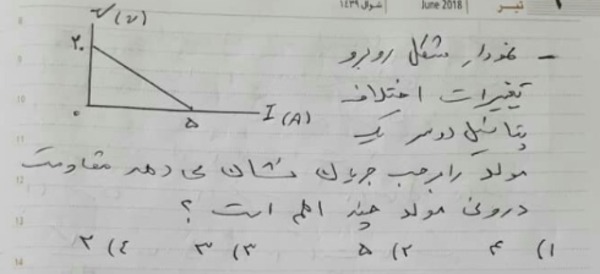 تیر ۱
June 2018
شوال ۱۴۳۹
V(v)
۲۰
۰
۵
I(A)
- نمودار شکل روبرو
تغییرات اختلاف
پتانسیل دو سر یک
مولد را برحسب جریان نشان می دهد مقاومت
درونی مولد چند اهم است ؟
۱) ۴ ۲) ۵ ۳) ۳ ۴) ۲